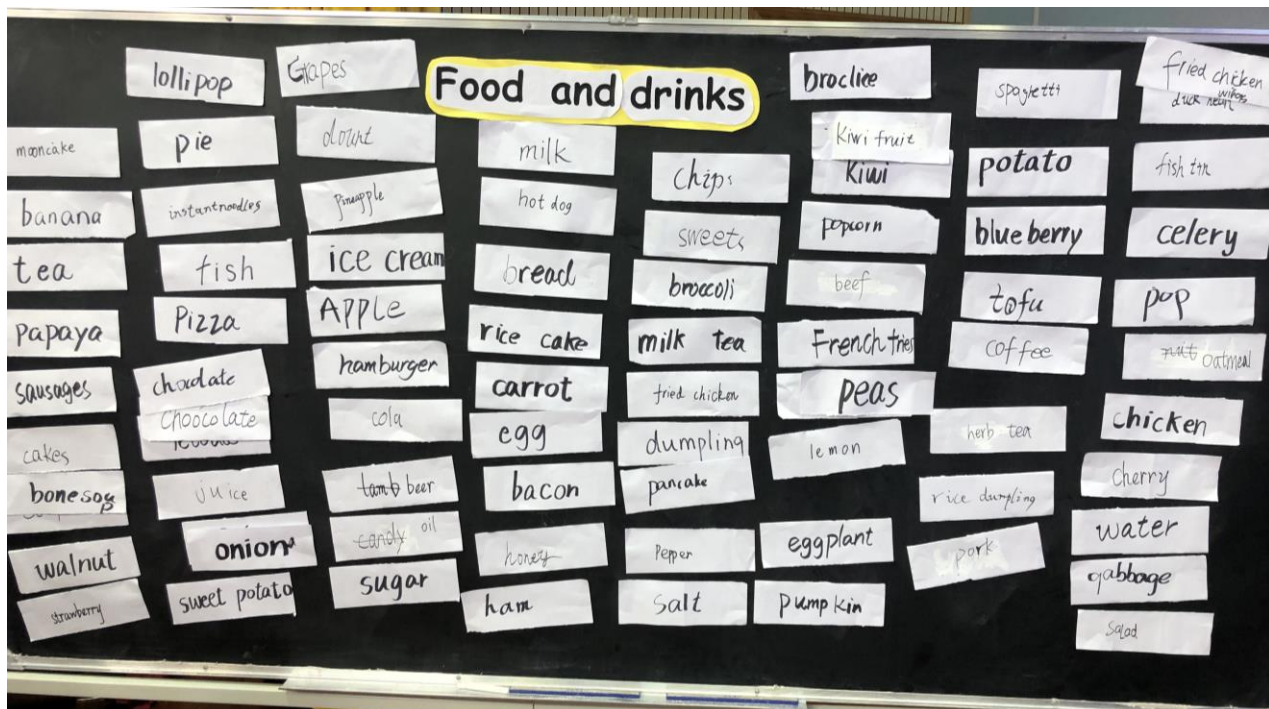 Food and drinks
mooncake
banana
tea
papaya
sausages
cakes
bone soup
walnut
strawberry
lollipop
pie
instantnoodles
fish
Pizza
chocolate
Choocolate
juice
onion
sweet potato
Grapes
dount
pineapple
ice cream
APPLE
hamburger
cola
lamb beer
candy oil
sugar
milk
hot dog
bread
rice cake
carrot
egg
bacon
honey
ham
chips
sweets
broccoli
milk tea
fried chicken
dumpling
pancake
Pepper
salt
broclice
Kiwi fruit
kiwi
popcorn
beef
French fries
peas
lemon
eggplant
pumpkin
spagietti
potato
blueberry
tofu
coffee
herb tea
rice dumpling
pork
fried chicken
wings
duck
fish
celery
pop
nut oatmeal
chicken
Cherry
water
gabbage
Salad